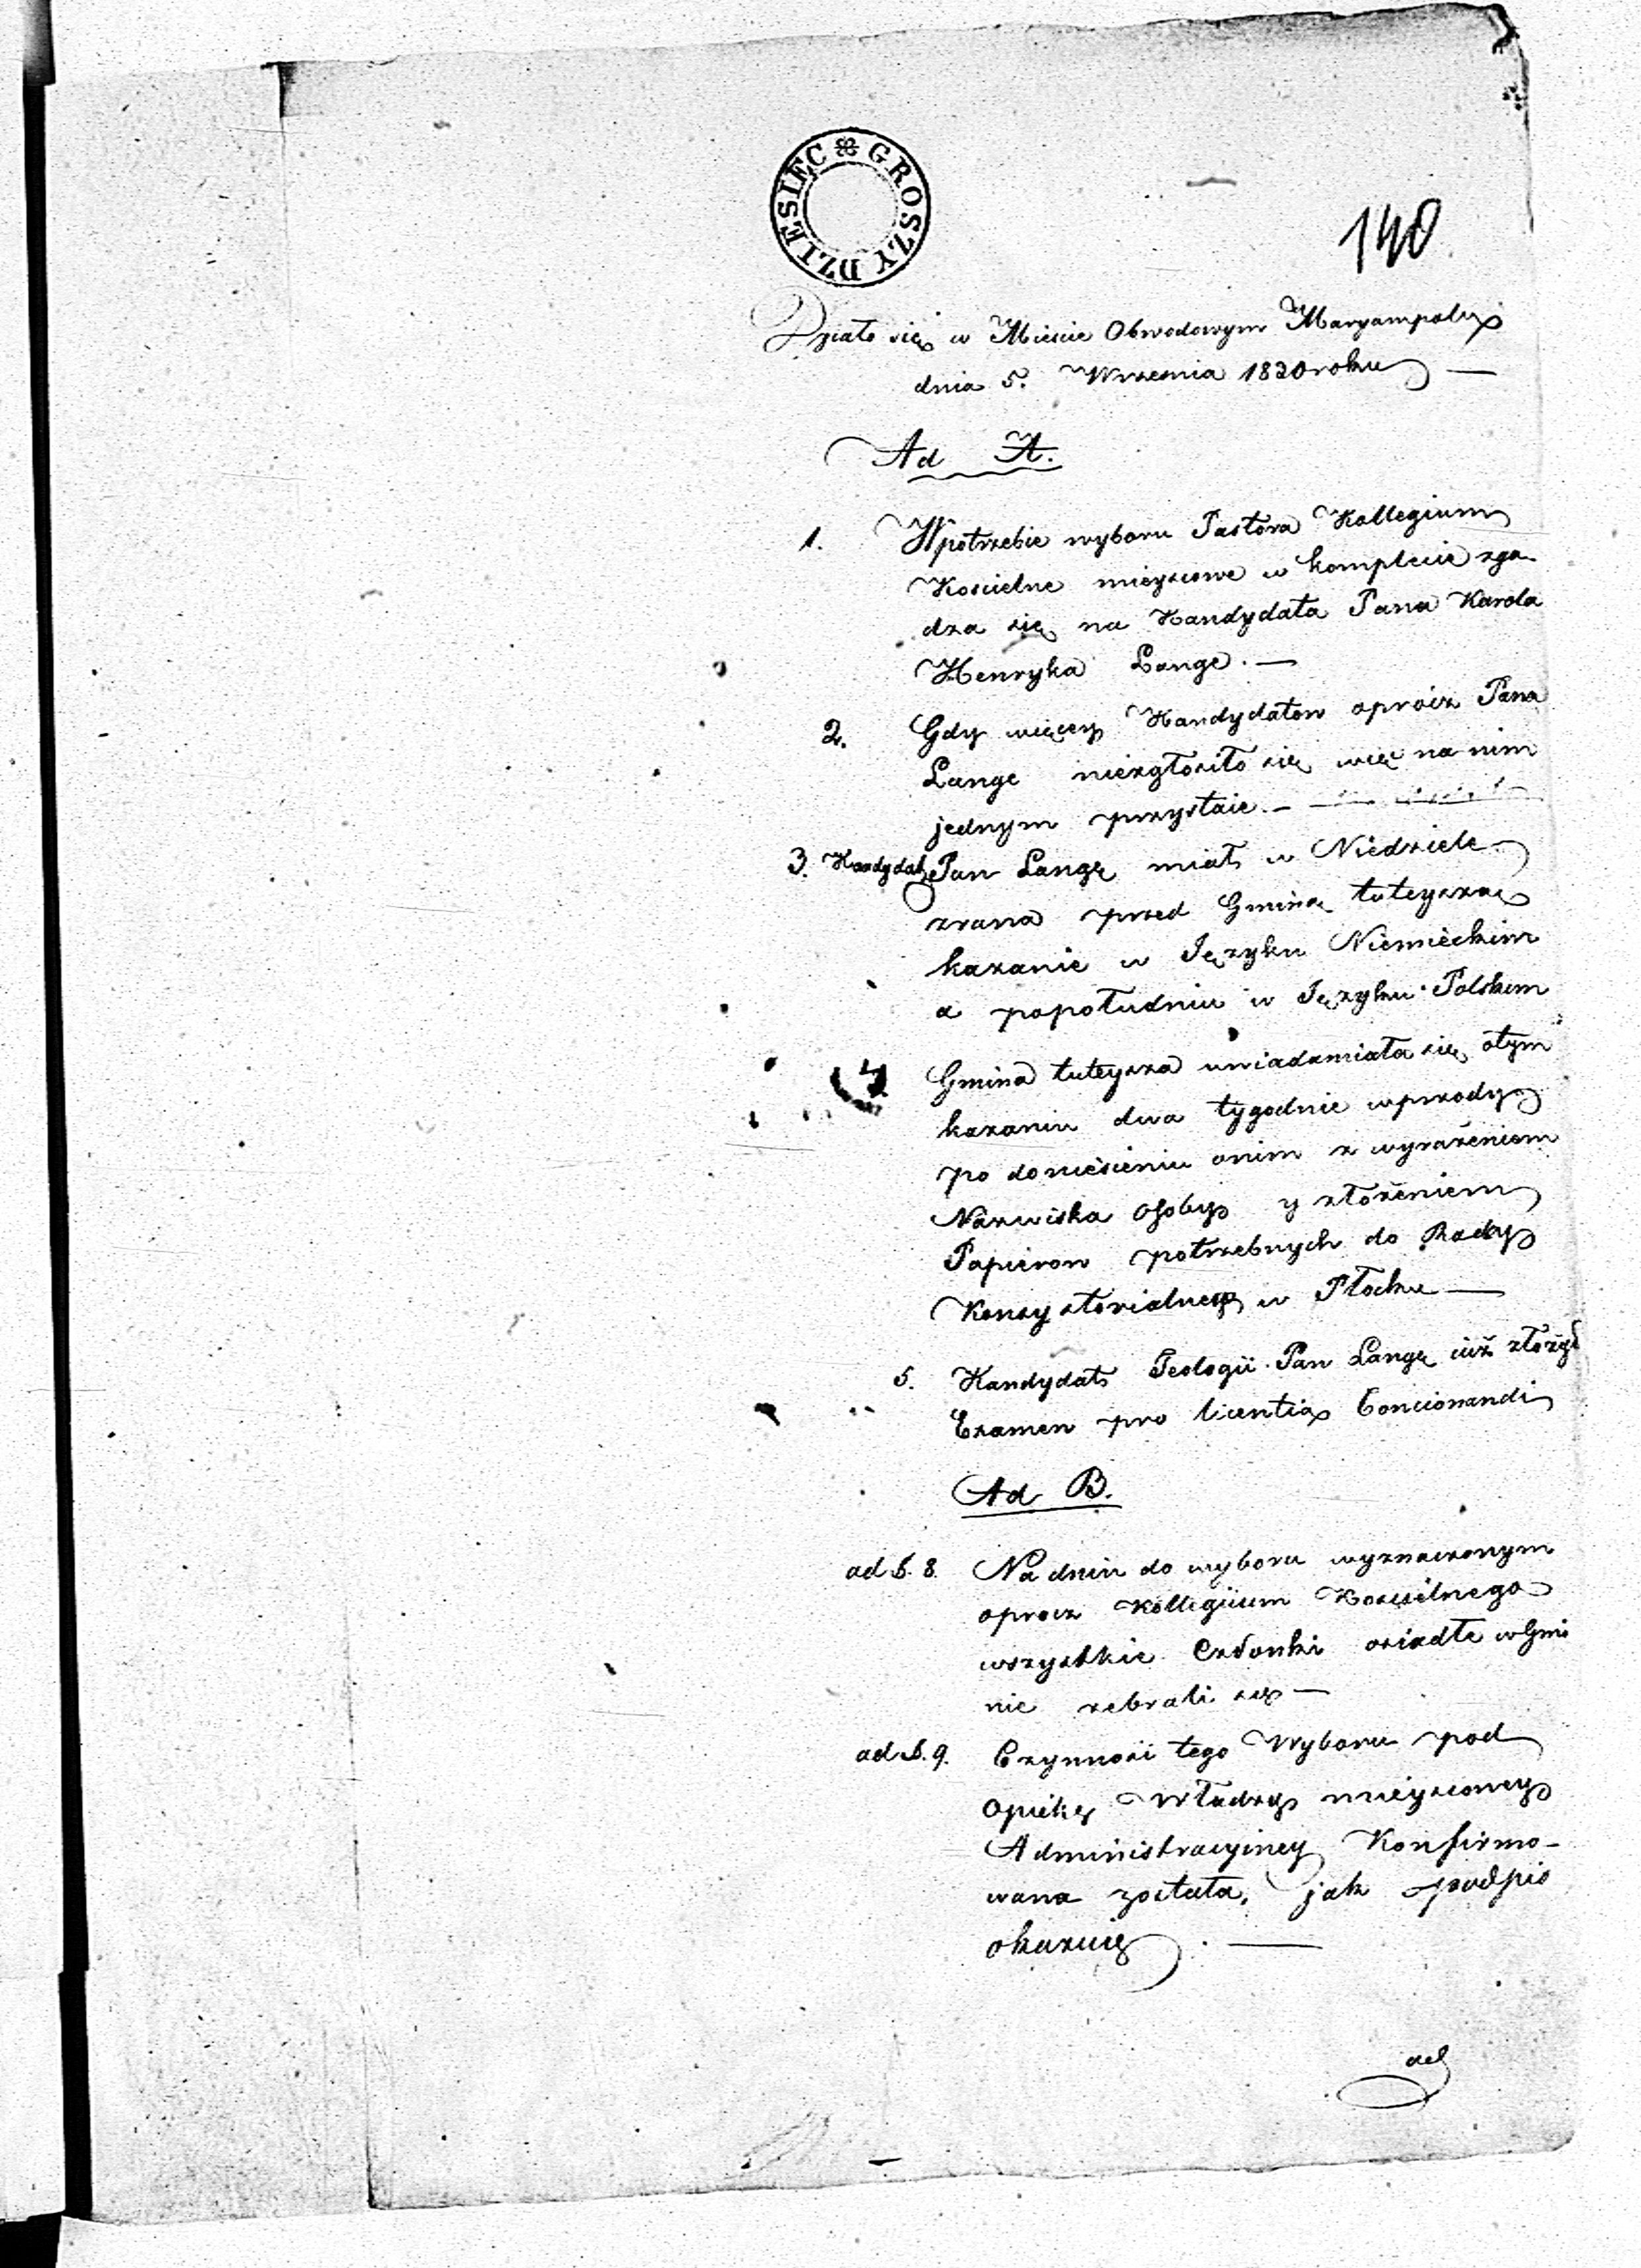 DZIESIĘC GROSZY
140
Działo się w Mieście Obwodowym Maryampolu
dnia 5. Wrzesnia 1820 roku —
Ad A.
1. W potrzebie wyboru Pastora Kollegium
Koscielne mieyscowe w komplecie zga-
dza się na Kandydata Pana Karola
Henryka Lange. —
2. Gdy więcey Kandydatow oprócz Pana
Lange niezgłosiło się więc na nim
jednym przystaie. —
3. Kandydat Pan Lange miał w Niedziele
zrana przed Gminą tuteyszą
kazanie w Języku Niemieckim
a popołudniu w Języku Polskim
4. Gmina tuteysza uwiadamiała się otym
kazaniu dwa tygodnie wprzody
po doniesieniu onim z wyrażeniem
Nazwiska Osoby y złożeniem
Papierow potrzebnych do Rady
Konsystorialney w Płocku —
5. Kandydat Teologii Pan Lange iuż złożył
Examen pro licentia Concionandi
Ad B.
ad §. 8. Na dniu do wyboru wyznaczonym
oprocz Kollegiium Koscielnego
wszystkie Członki osiadłe w Gmi
nie zebrali się —
ad §. 9. Czynności tego Wyboru pod
Opieką Władzy mieyscowey
Administracyiney Konfirmo-
wana została, jak podpis
okazuie. —
ad